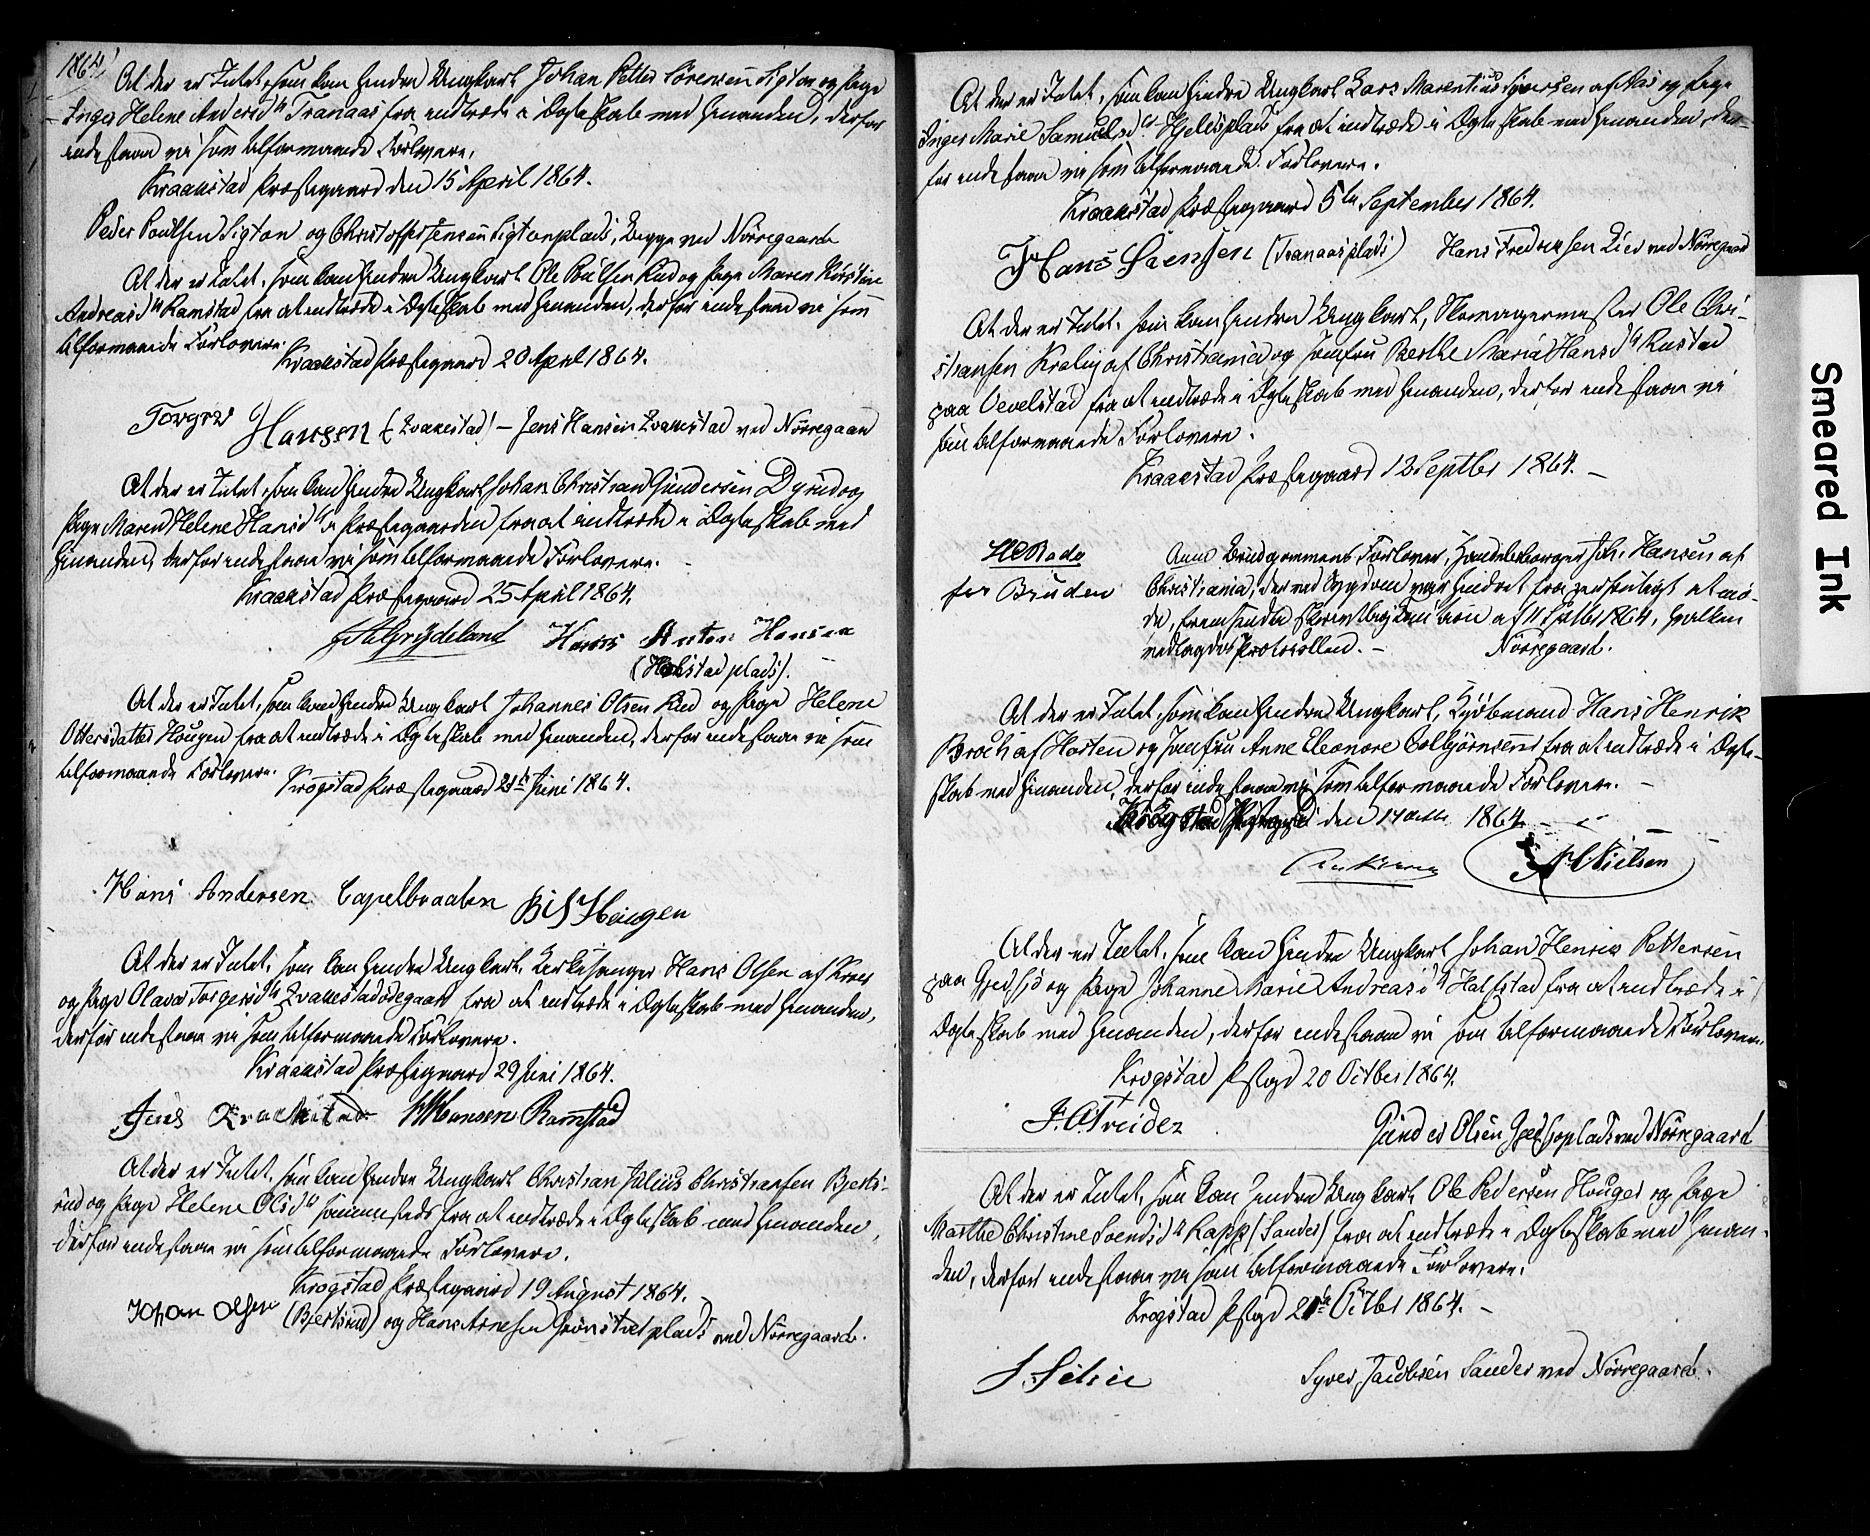 1864
At der er Intet, som kan hindre Ungkarl Johan Petter Sörensen Sigton og Pige
Inger Helene Andersd. Tranaas fra at indtræde i Ægteskab med hinanden, derfor
indestaae vi som tilformaaende Forlovere.
Kraakstad Præstegaard den 15 April 1864.
Peder Poulsen Sigton og Christoffer Jensen Sigtonplads, begge ved Nörregaard
At der er Intet, som kan hindre Ungkarl Ole Poulsen Rud og Pige Maren Kirstine
Andreasd. Ramstad fra at indtræde i Ægteskab med hinanden, derfor indestaae vi som
tilformaaende Forlovere.
Kraakstad Præstegaard 20 April 1864.
Torger Hansen (Kraakstad) – Jens Hansen Kraakstad ved Nörregaard
At der er Intet, som kan hindre Ungkarl Johan Christian Gundersen Dyrud og
Pige Maren Helene Hansd. Præstegaarden fra at indtræde i Ægteskab med
hinanden, derfor indestaae vi som tilformaaende Forlovere. –
Kraakstad Præstegaard 25 April 1864.
Grydeland Hans Anton Hansen
(Holstad plads). –
At der er Intet, som kan hindre Ungkarl Johannes Olsen Rud og Pige Helene
Ottersdatter Hougen fra at indtræde i Ægteskab med hinanden, derfor indestaae vi som
tilformaaende Forlovere.
Krogstad Præstegaard 21de Juni 1864.
Hans Andersen Capelbraaten Hougen
At der er Intet, som kan hindre Ungkarl, Kirkesanger Hans Olsen af
og Pige Olava Torgersd. Kraakstadödegaard fra at indtræde i Ægteskab med hinanden,
derfor indestaae vi som tilformaaende Forlovere.
Kraakstad Præstegaard 29 Juni 1864.
Jens Kraakstad Hansen Ramstad
At der er Intet, som kan hindre Ungkarl Christian Julius Christiansen Bjerts-
rud og Pige Helene Olsd. sammesteds fra at indtræde i Ægteskab med hinanden,
derfor indestaae vi som tilformaaende Forlovere.
Krogstad Præstegaard 19 August 1864.
Johan Olsen (Bjertsrud) og Hans Arnesen Grönsletplads ved Nörregaard.
At der er Intet, som kan hindre Ungkarl Lars Marentius Syversen af Aas og Pige
Inger Marie Samuelsd. Hjellesplads fra at indtræde i Ægteskab med hinanden, der-
for indestaae vi som tilformaaende Forlovere.
Kraakstad Præstegaard 5te September 1864.
Hans Svensen (Tranaasplads) Hans Fredriksen Lier ved Nörregaard
At der er Intet, som kan hindre Ungkarl, Skomagermester Ole Chri-
stiansen Kralig af Christiania og Jomfru Berthe Maria Hansd. Rustad
paa Vevelstad fra at indtræde i Ægteskab med hinanden, derfor indestaae vi
som tilformaaende Forlovere.
Kraakstad Præstegaard 12 Septbr 1864. –
HCRode
for Bruden
Anm. Brudgommens Forlover, Handelsborger Joh. Hansen af
Christiania, der ved Sygdom var hindret fra personligt at mö-
de, fremsendte skriftlig Caution af 11 Septbr 1864, hvilken
vedlagdes Protocollen. – Nörregaard.
At der er Intet, som kan hindre Ungkarl, Kjöbmand Hans Henrik
Broch af Horten og Jomfru Anne Eleonore Colbjörnsen fra at indtræde i Ægte-
skab med hinanden, derfor indestaae vi som tilformaaende Forlovere. –
Krogstad Præstegd den 14 Octbr 1864. –
Nielsen
At der er Intet, som kan hindre Ungkarl Johan Henrik Pettersen
paa Gjedsjö og Pige Johanne Marie Andreasd. Halfstad fra at indtræde i
Ægteskab med hinanden, derfor indestaae vi som tilformaaende Forlovere.
Krogstad Pstgd 20 October 1864.
F. O. Treider Gunder Olsen Gjedsjöplads ved Nörregaard
At der er Intet, som kan hindre Ungkarl Ole Pedersen Houger og Pige
Marthe Christine Svendsd. Kapp (Sander) fra at indtræde i Ægteskab med hinan-
den, derfor indestaae vi som tilformaaende Forlovere.
Krogstad Pstgd 21de Octbr 1864. –
Syver Jacobsen Sander ved Nörregaard.
Smeared Ink